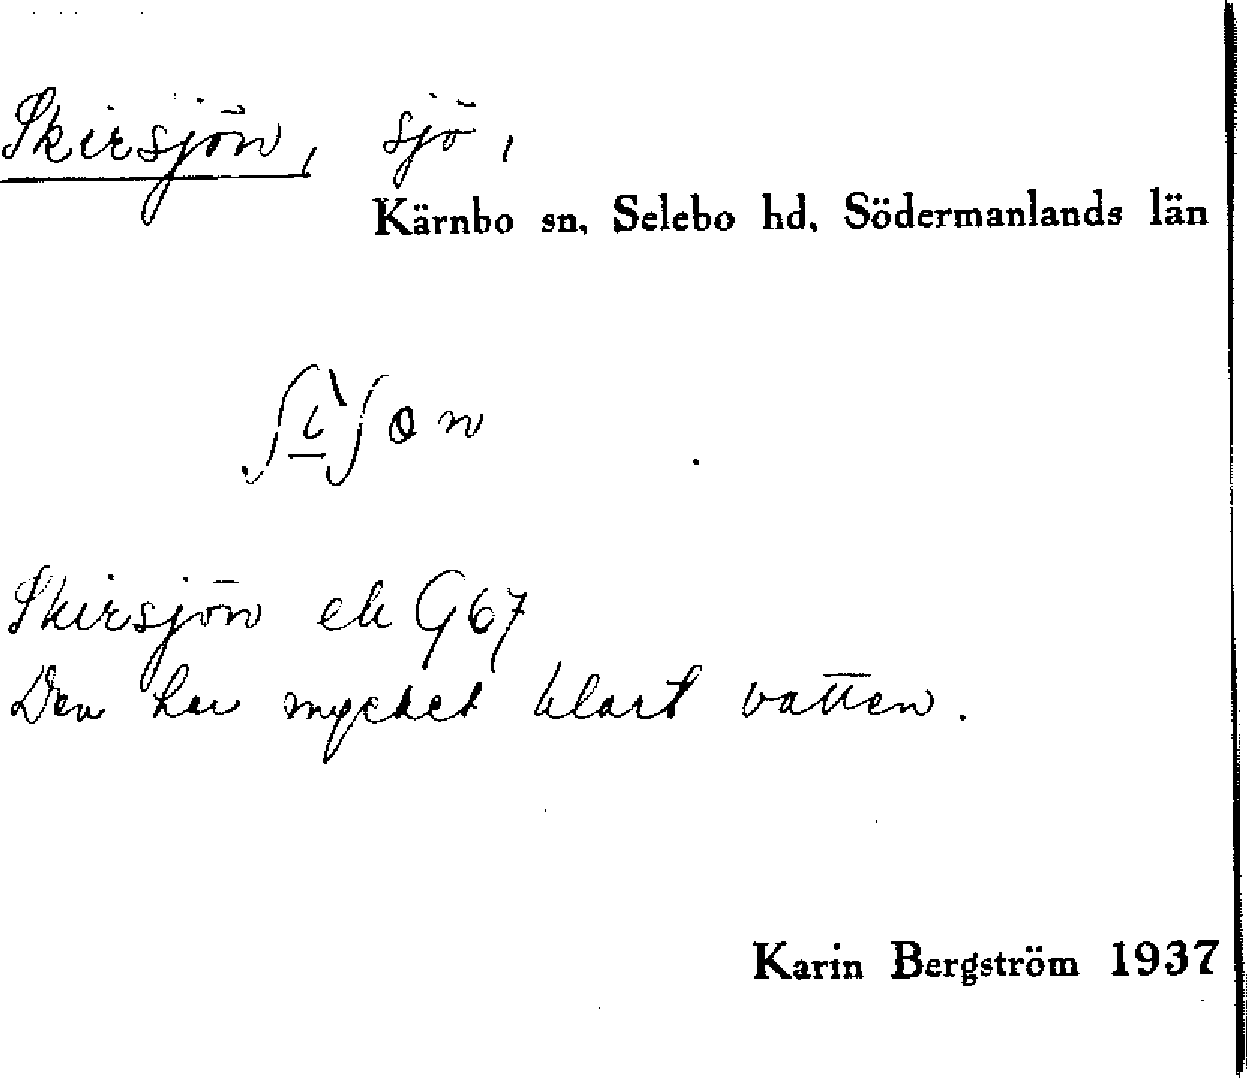 Skirsjön, sjö,
Kärnbo sn, Selebo hd, Södermanlands län
ʃì̱ʃɵn
Skirsjön ek G67
Den har mycket klart vatten.
Karin Bergström 1937